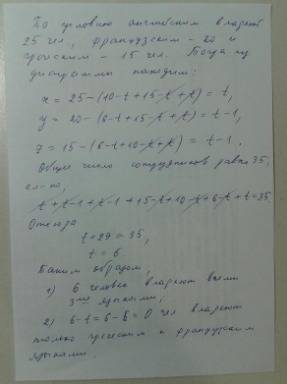 По условию английским владеют
25 чел, французским - 20 и
греческим - 15 чел. Тогда из
диаграммы находим:
x = 25-(10-t+15-t+t) = t,
y = 20-(6-t+15-t+t) = t-1,
z = 15-(6-t+10-t+t) = t-1.
Общее число сотрудников равно 35,
t+t-1+t-1+15-t+10-t+6-t+t=35
Отсюда
t+29 = 35,
t = 6.
Таким образом,
1) 6 человек владеют всеми
3мя языками;
2) 6-t=6-6=0 чел владеют
только греческим и французским
языками.